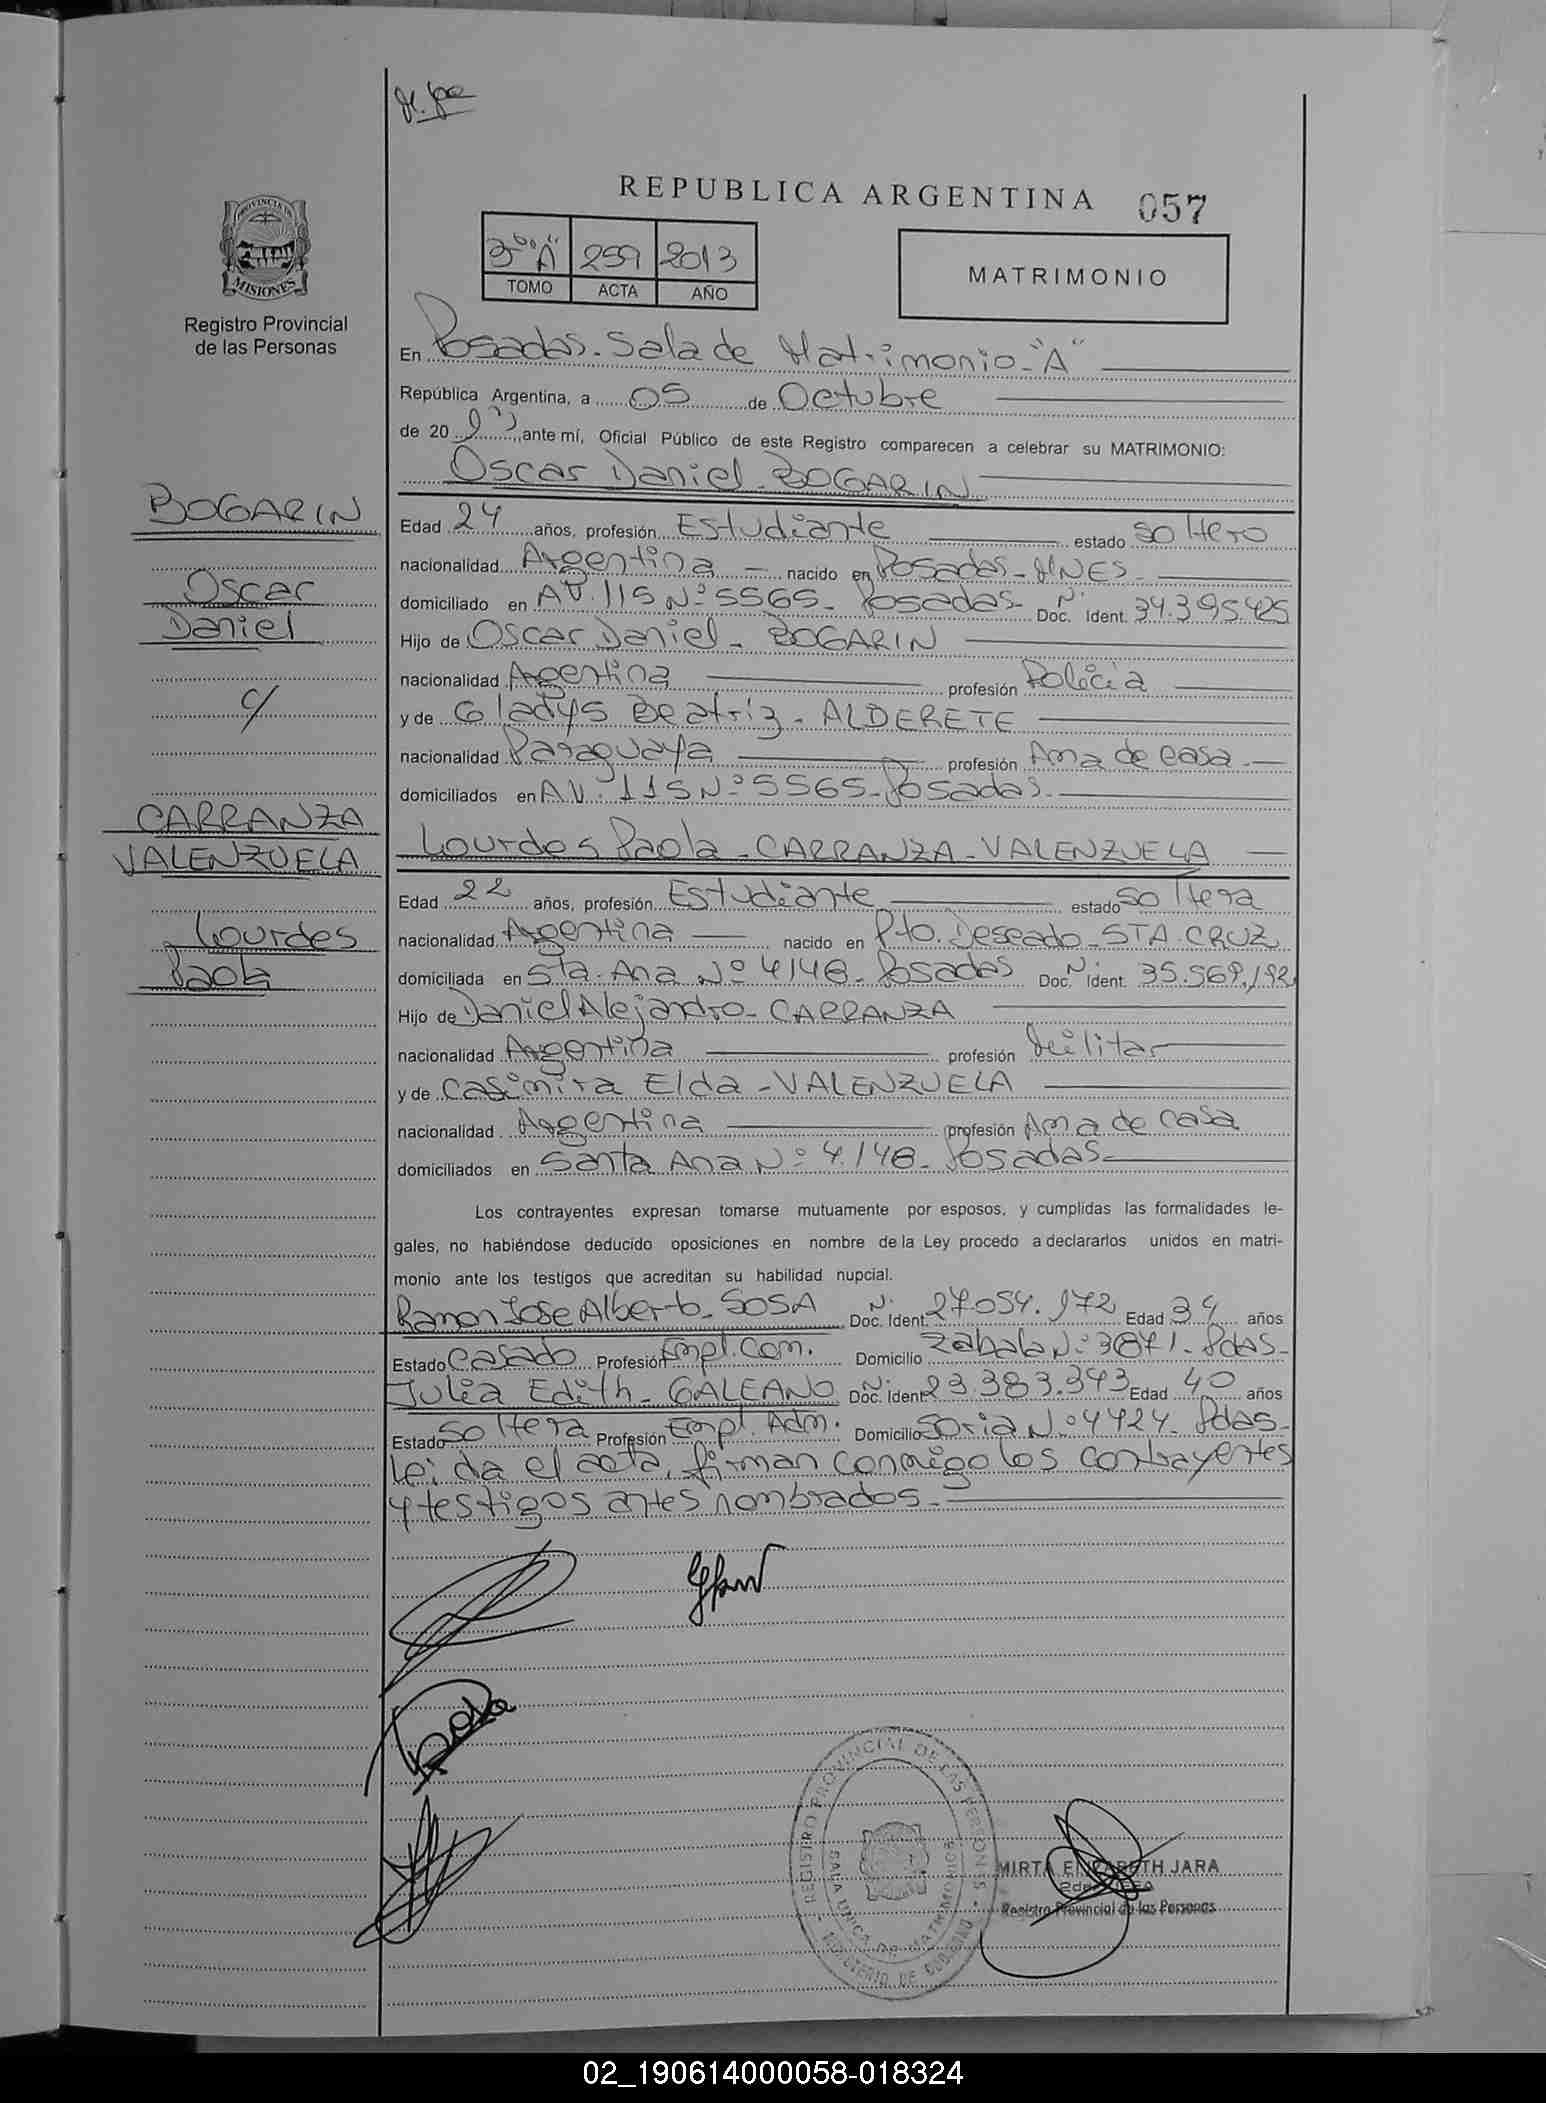 REPUBLICA ARGENTINA 057
3º "A" 259 2013
TOMO ACTA AÑO
MATRIMONIO
PROVINCIA DE
MISIONES
Registro Provincial
de las Personas
En Posadas. Sala de Matrimonio - "A"
República Argentina, a 05 de Octubre
de 20 13, ante mí, Oficial Público de este Registro comparecen a celebrar su MATRIMONIO:
Oscar Daniel - BOGARIN
BOGARIN
Oscar
Daniel
c/
CARRANZA
VALENZUELA
Lourdes
Paola
Edad 24 años, profesión Estudiante estado soltero
nacionalidad Argentina nacido en Posadas - MNES -
domiciliado en AV. 115 Nº 5565 - Posadas - Doc. Nº Ident. 34.395.425
Hijo de Oscar Daniel - BOGARIN
nacionalidad Argentina profesión Policía
y de Gladys Beatriz - ALDERETE
nacionalidad Paraguaya profesión Ama de casa
domiciliados en AV. 115 Nº 5565 - Posadas -
Lourdes Paola - CARRANZA - VALENZUELA
Edad 22 años, profesión Estudiante estado soltera
nacionalidad Argentina nacido en Pto. Deseado - STA. CRUZ
domiciliada en Sta. Ana Nº 4148 - Posadas Doc. Nº Ident. 35.569.192
Hijo de Daniel Alejandro - CARRANZA
nacionalidad Argentina profesión Militar
y de Casimira Elda - VALENZUELA
nacionalidad Argentina profesión Ama de casa
domiciliados en Santa Ana Nº 4.148 - Posadas -
Los contrayentes expresan tomarse mutuamente por esposos, y cumplidas las formalidades le-
gales, no habiéndose deducido oposiciones en nombre de la Ley procedo a declararlos unidos en matri-
monio ante los testigos que acreditan su habilidad nupcial.
Ramon Jose Alberto - SOSA Doc. Nº Ident. 27.054.172 Edad 34 años
Estado Casado Profesión Empl. Com. Domicilio Zabala Nº 3871 - Pdas -
Julia Edith - GALEANO Doc. Nº Ident. 23.383.393 Edad 40 años
Estado Soltera Profesión Empl. Adm. Domicilio Soria Nº 4424 - Pdas -
Leida el acta, firman conmigo los contrayentes
y testigos antes nombrados -
REGISTRO PROVINCIAL DE LAS PERSONAS
SALA UNICA DE MATRIMONIOS
MINISTERIO DE GOBIERNO
MIRTA ELIZABETH JARA
2da. JEFA
Registro Provincial de las Personas
02_190614000058-018324